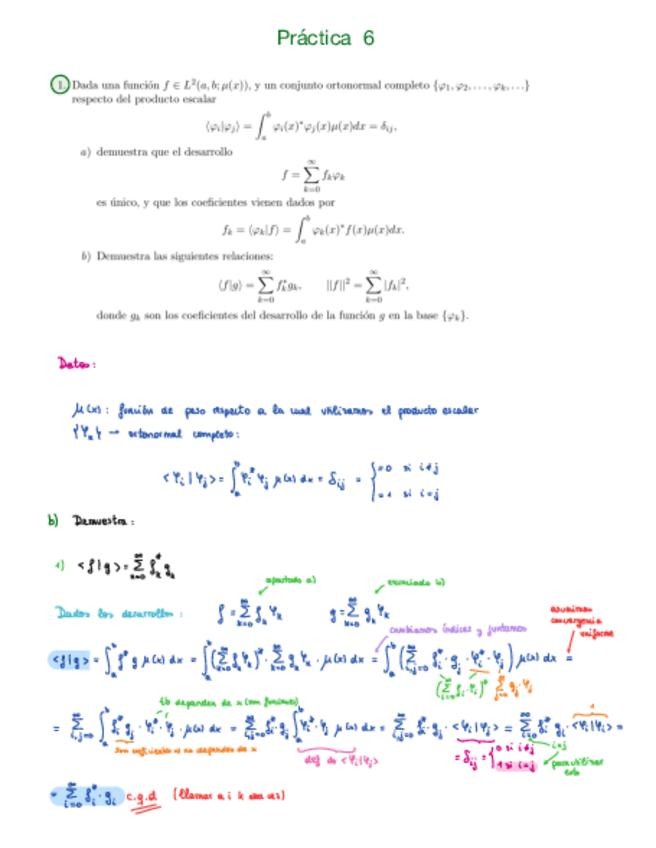 Práctica 6
1. Dada una función f ∈ L²(a, b; μ(x)), y un conjunto ortonormal completo {φ₁, φ₂, . . . , φₖ, . . .}
respecto del producto escalar
⟨φᵢ|φⱼ⟩ = ∫ₐᵇ φᵢ(x)*φⱼ(x)μ(x)dx = δᵢⱼ,
a) demuestra que el desarrollo
f = ∑_{k=0}^∞ fₖφₖ
es único, y que los coeficientes vienen dados por
fₖ = ⟨φₖ|f⟩ = ∫ₐᵇ φₖ(x)*f(x)μ(x)dx.
b) Demuestra las siguientes relaciones:
⟨f|g⟩ = ∑_{k=0}^∞ fₖ*gₖ, ||f||² = ∑_{k=0}^∞ |fₖ|²,
donde gₖ son los coeficientes del desarrollo de la función g en la base {φₖ}.
Datos:
μ(x): función de peso respecto a la cual utilizamos el producto escalar
{φₖ} → ortonormal completo:
<φᵢ|φⱼ> = ∫ₐᵇ φᵢ* φⱼ μ(x) dx = δᵢⱼ = { =0 si i≠j
=1 si i=j
b) Demuestra:
1) <f|g> = ∑_{k=0}^∞ fₖ* gₖ
apartado a) enunciado b)
Dados los desarrollos: f = ∑_{k=0}^∞ fₖ φₖ g = ∑_{k=0}^∞ gₖ φₖ
asumimos
convergencia
uniforme
cambiamos índices y juntamos
<f|g> = ∫ₐᵇ f* g μ(x) dx = ∫ₐᵇ (∑_{k=0}^∞ fₖφₖ)* · ∑_{k=0}^∞ gₖ φₖ · μ(x) dx = ∫ₐᵇ (∑_{i,j=0}^∞ fᵢ* · gⱼ · φᵢ* · φⱼ) μ(x) dx =
(∑ fᵢ · φᵢ)* ∑ gⱼ · φⱼ
lo dependen de x (son funciones)
= ∑_{i,j=0}^∞ ∫ₐᵇ fᵢ* gⱼ · φᵢ* · φⱼ · μ(x) dx = ∑_{i,j=0}^∞ fᵢ* · gⱼ ∫ₐᵇ φᵢ* · φⱼ μ(x) dx = ∑_{i,j=0}^∞ fᵢ* · gⱼ · <φᵢ|φⱼ> = ∑_{i=0}^∞ fᵢ* gᵢ · <φᵢ|φᵢ> =
1
son coeficientes no dependen de x
def de <φᵢ|φⱼ>
= δᵢⱼ = { 0 si i≠j
1 si i=j
i=j
para utilizar
esto
= ∑_{i=0}^∞ fᵢ* · gᵢ c.q.d (llamar a i k otra vez)